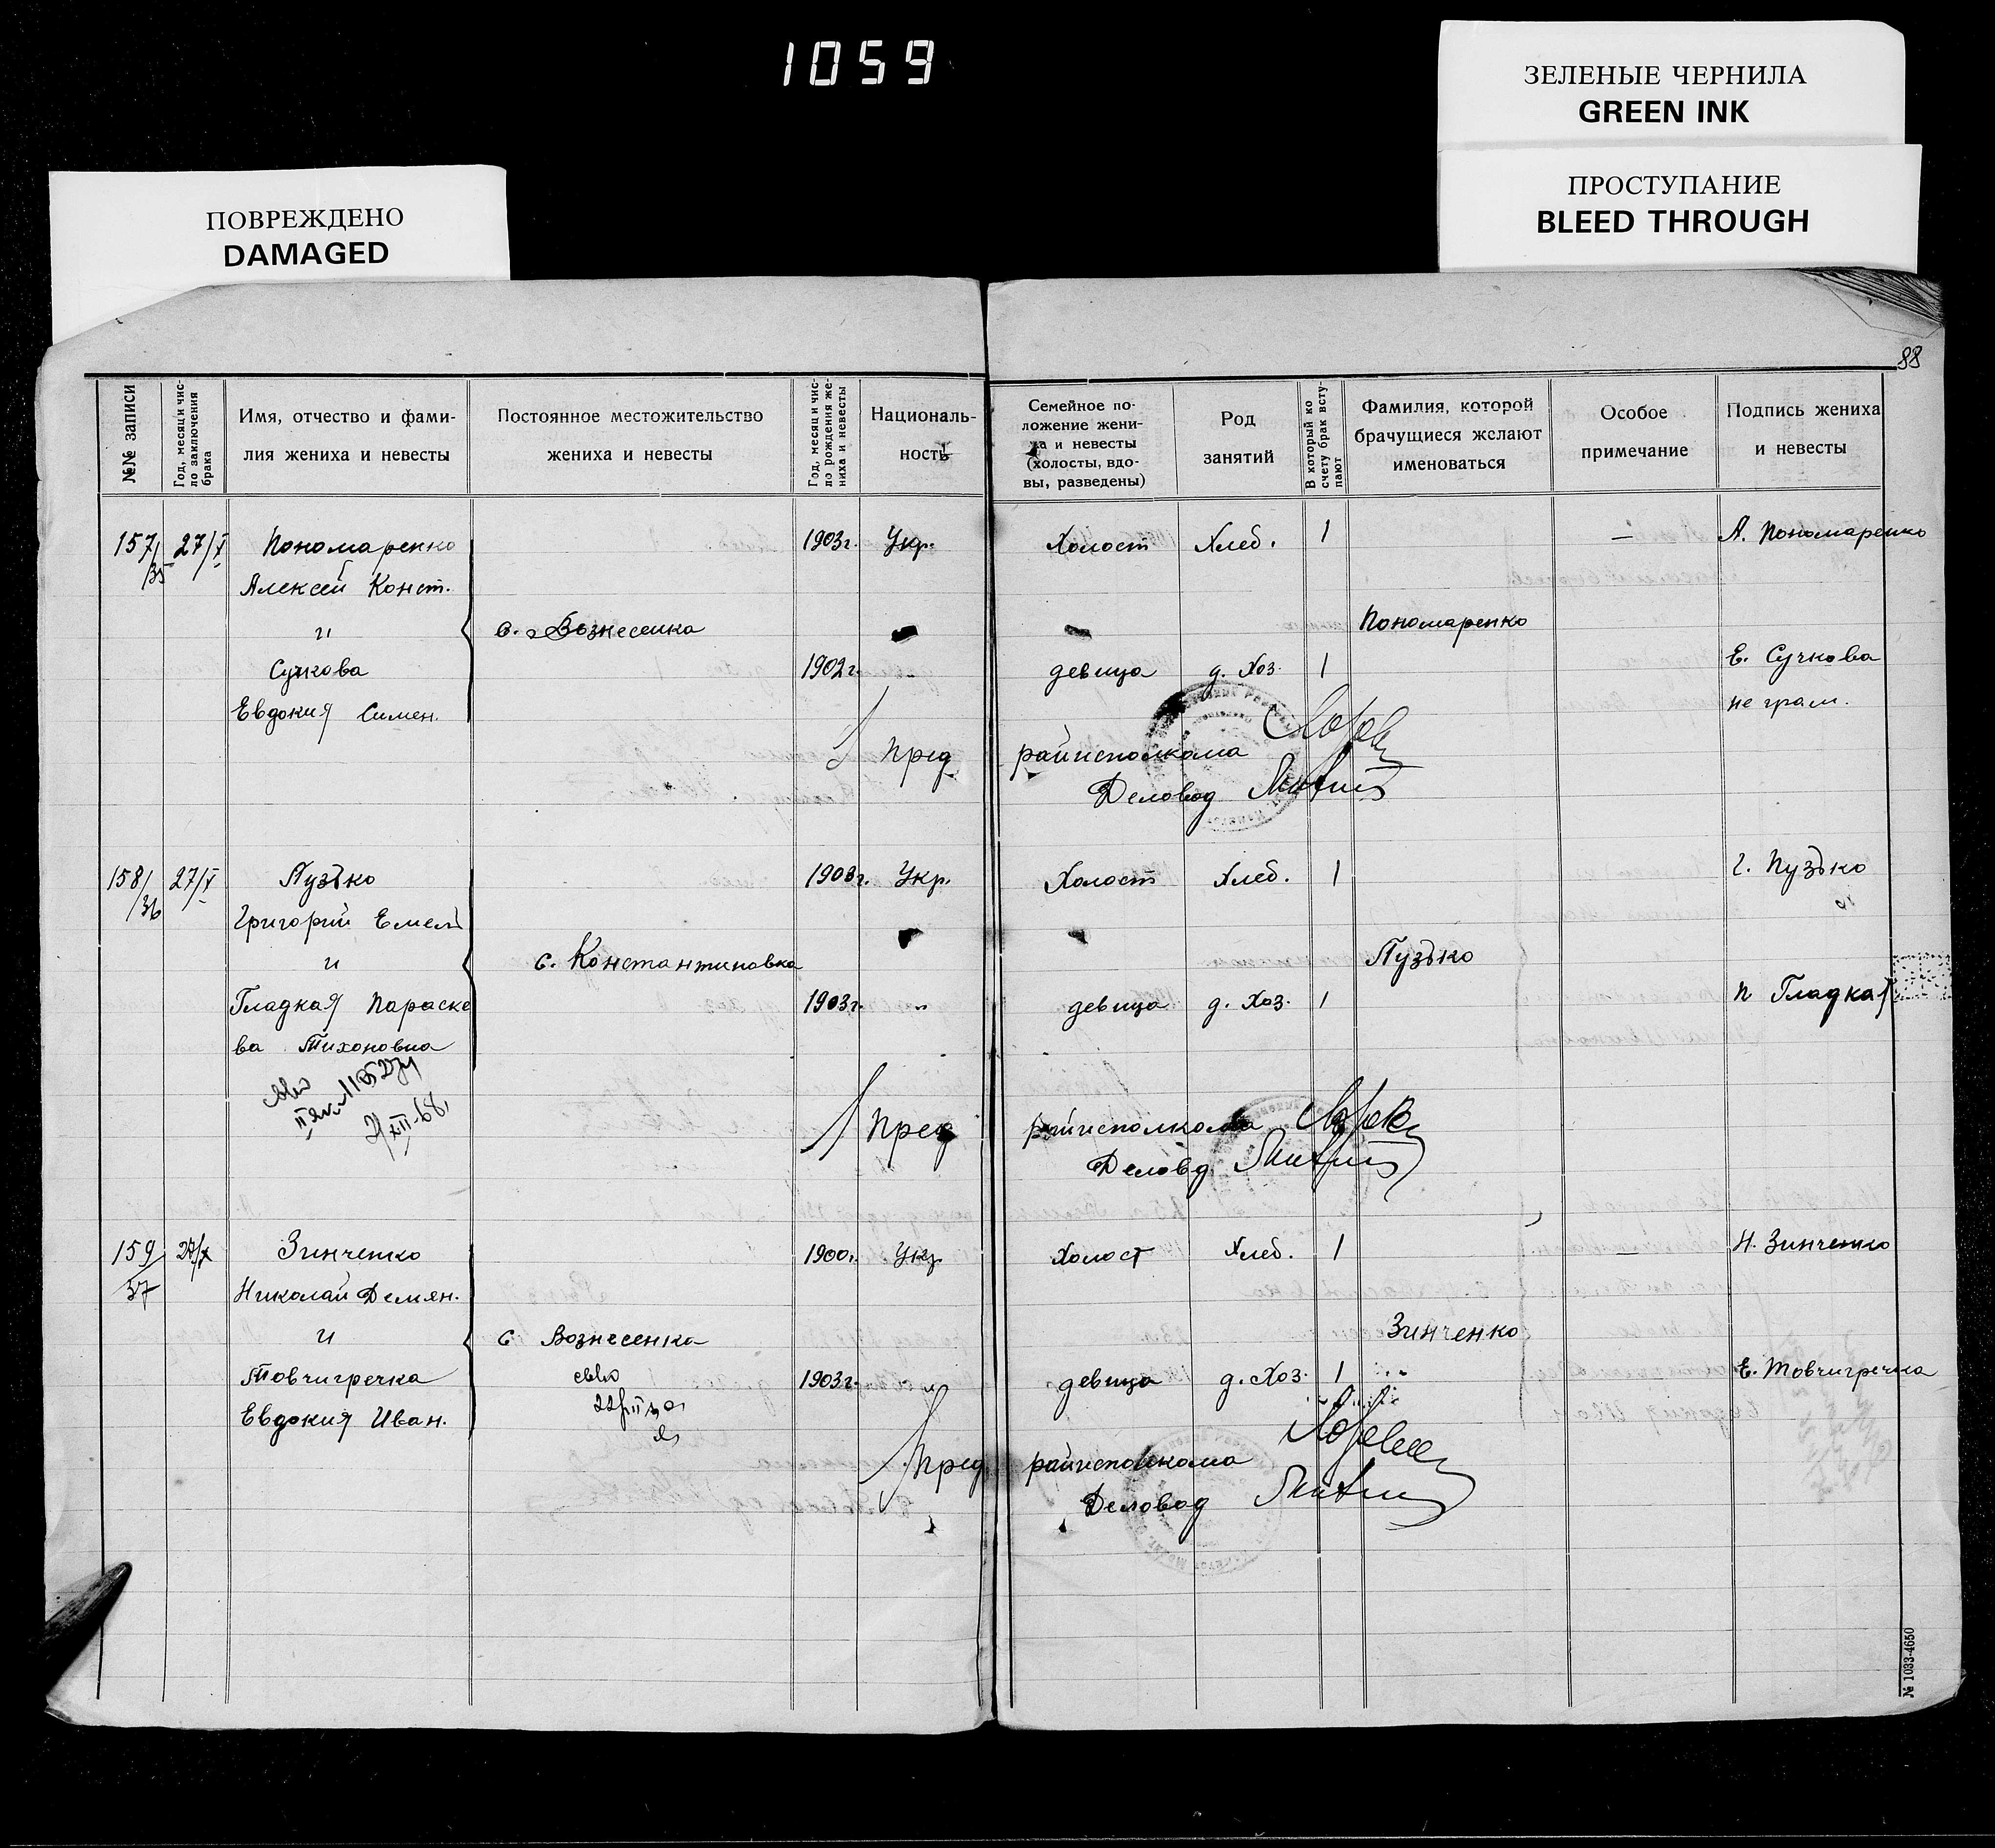 1059
ЗЕЛЕНЫЕ ЧЕРНИЛА
GREEN INK
ПРОСТУПАНИЕ
BLEED THROUGH
ПОВРЕЖДЕНО
DAMAGED
88
№№ записи
Год, месяц и чис-
ло заключения
брака
Имя, отчество и фами-
лия жениха и невесты
Постоянное местожительство
жениха и невесты
Год, месяц и чис-
ло рождения же-
ниха и невесты
Националь-
ность
Семейное по-
ложение жени-
ха и невесты
(холосты, вдо-
вы, разведены)
Род
занятий
В который ко
счету брак всту-
пают
Фамилия, которой
брачущиеся желают
именоваться
Особое
примечание
Подпись жениха
и невесты
157/35 27/X Пономаренко 1903г. Укр. Холост Хлеб. 1 — А. Пономаренко
Алексей Конст.
и с. Вознесенка Пономаренко
Сучкова 1902г. „ девица д. Хоз. 1 Е. Сучкова
Евдокия Симен. не грам.
Пред райисполкома
Деловод
158/36 27/X Пузько 1903г. Укр. Холост Хлеб. 1 Г. Пузько
Григорий Емел
и с. Константиновка Пузько
Гладкая Параске 1903г. „ девица д. Хоз. 1 П Гладкая
ва Тихоновна
Пред райисполкома
Деловд
159/37 27/X Зинченко 1900г. Укр Холост Хлеб. 1 — Н. Зинченко
Николай Демян.
и с Вознесенка Зинченко
Товчигречка 1903г. „ девица д. Хоз. 1 Е. Товчигречка
Евдокия Иван.
Пред райисполкома
Деловод
№ 1033-4650